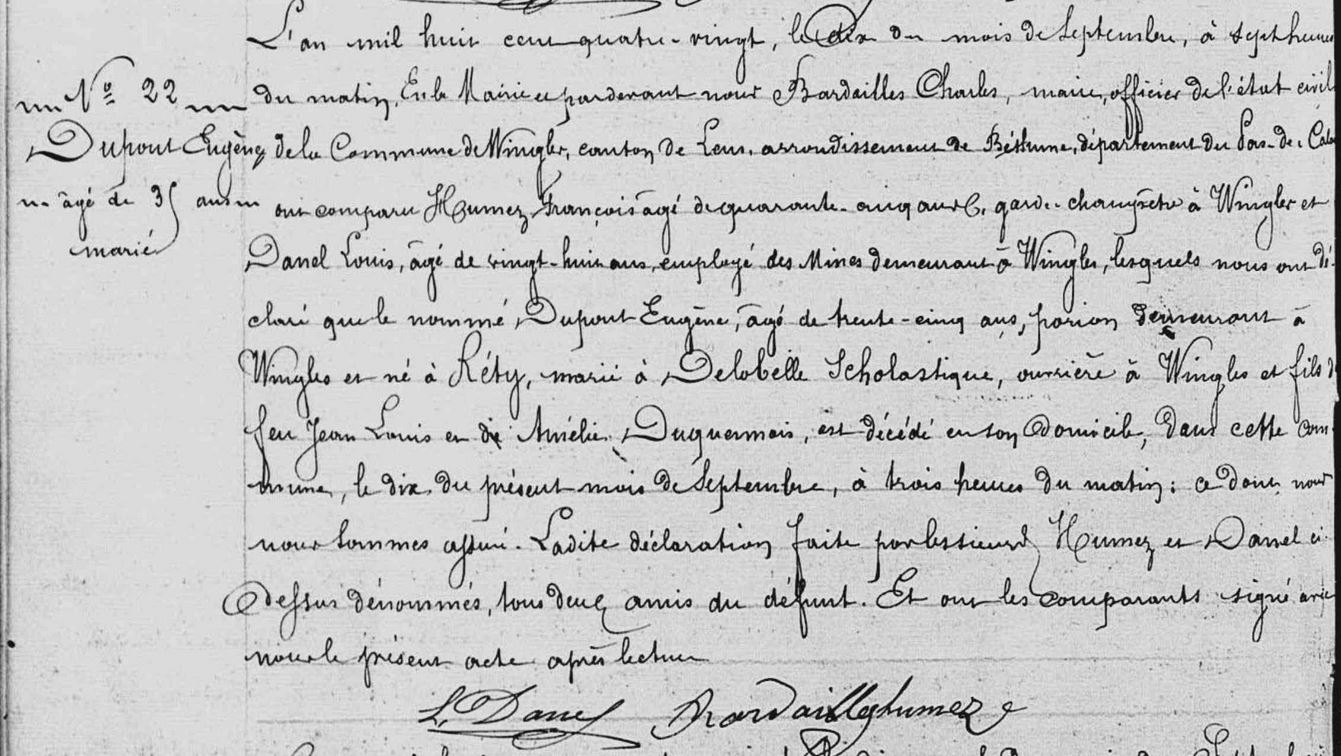 L'an mil huit cent quatre-vingt, le dix du mois de Septembre, à sept heures
Nº 22
du matin, En la Mairie et pardevant nous Bardailles Charles, maire, officier de l'état civil
Dupont Eugène
de la Commune de Wingles, canton de Lens, arrondissement de Béthune, département du Pas-de-Calais
âgé de 35 ans
ont comparu Humez François âgé de quarante-cinq ans, garde-champêtre à Wingles et
marié
Danel Louis, âgé de vingt-huit ans, employé des Mines demeurant à Wingles, lesquels nous ont dé-
claré que le nommé Dupont Eugène, âgé de trente-cinq ans, porion demeurant à
Wingles et né à Réty, marié à Delobelle Scholastique, ouvrière à Wingles et fils de
feu Jean Louis et de Amélie Duquennois, est décédé en son domicile, dans cette com-
mune, le dix du présent mois de Septembre, à trois heures du matin; ce dont nous
nous sommes assuré. Ladite déclaration faite par les sieurs Humez et Danel ci-
dessus dénommés, tous deux amis du défunt. Et ont les comparants signé avec
nous le présent acte après lecture
L. Danel Bardailles humez